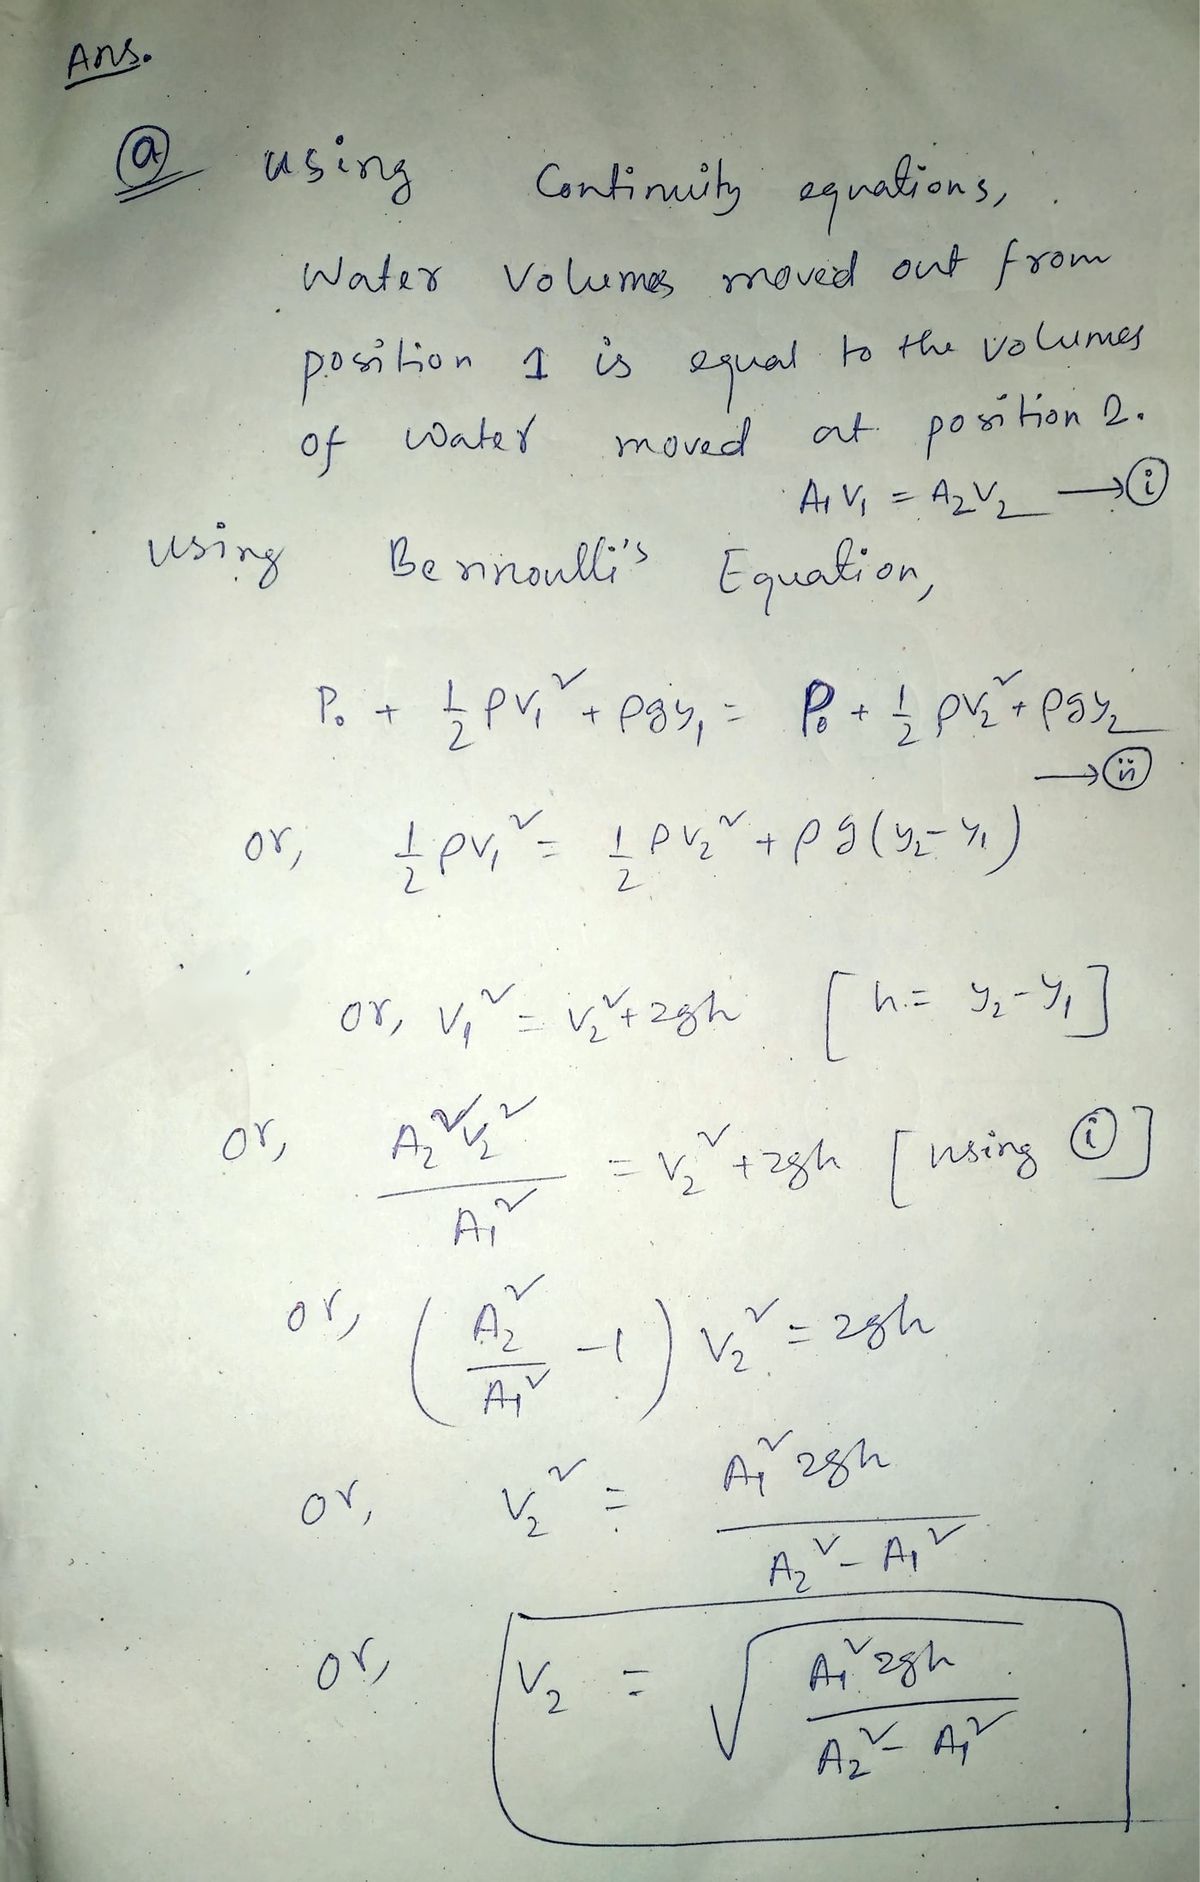 Ans.
(a) using Continuity equations,
Water Volumes moved out from
position 1 is equal to the volumes
of water moved at position 2.
A₁V₁ = A₂V₂ → (i)
using Bernnoulli's Equation,
P₀ + 1/2 ρV₁² + ρgy₁ = P₀ + 1/2 ρV₂² + ρgy₂
→ (ii)
or, 1/2 ρV₁² = 1/2 ρV₂² + ρg(y₂-y₁)
or, V₁² = V₂² + 2gh [h = y₂-y₁]
or, A₂²V₂²/A₁² = V₂² + 2gh [using (i)]
or, (A₂²/A₁² - 1) V₂² = 2gh
or, V₂² = A₁² 2gh/(A₂² - A₁²)
or, V₂ = √(A₁² 2gh/(A₂² - A₁²))